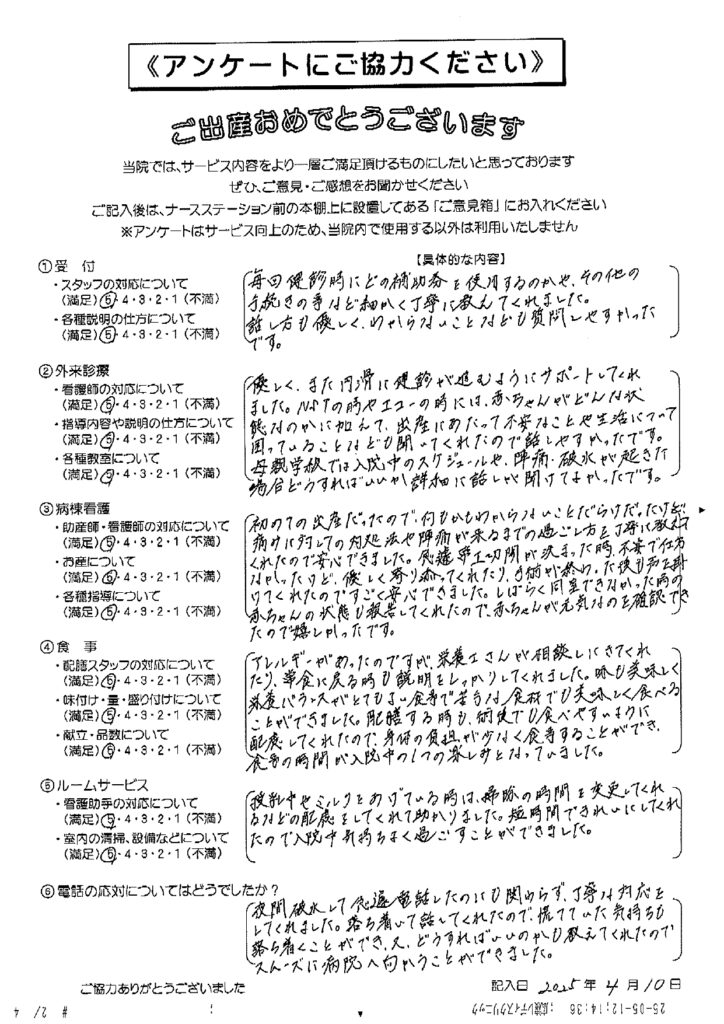 《アンケートにご協力ください》
ご出産おめでとうございます
当院では、サービス内容をより一層ご満足頂けるものにしたいと思っております
ぜひ、ご意見・ご感想をお聞かせください
ご記入後は、ナースステーション前の本棚上に設置してある「ご意見箱」にお入れください
※アンケートはサービス向上のため、当院内で使用する以外は利用いたしません
【具体的な内容】
①受 付
・スタッフの対応について
(満足)⑤・4・3・2・1(不満)
・各種説明の仕方について
(満足)⑤・4・3・2・1(不満)
毎回健診時にどの補助券を使用するのかや、その他の
手続きの事など細かく丁寧に教えてくれました。
話し方も優しく、わからないことなども質問しやすかった
です。
②外来診療
・看護師の対応について
(満足)⑤・4・3・2・1(不満)
・指導内容や説明の仕方について
(満足)⑤・4・3・2・1(不満)
・各種教室について
(満足)⑤・4・3・2・1(不満)
優しく、また円滑に健診が進むようにサポートしてくれ
ました。NSTの時やエコーの時には、赤ちゃんがどんな状
態なのかに加えて、出産にあたって不安なことや生活について
困っていることなども聞いてくれたので話しやすかったです。
母親学級では入院中のスケジュールや、陣痛・破水が起きた
場合どうすればいいか詳細に話しが聞けてよかったです。
③病棟看護
・助産師・看護師の対応について
(満足)⑤・4・3・2・1(不満)
・お産について
(満足)⑤・4・3・2・1(不満)
・各種指導について
(満足)⑤・4・3・2・1(不満)
初めての出産だったので、何もかもわからないことだらけだったけど
痛みに対しての対処法や陣痛が来るまでの過ごし方を丁寧に教えて
くれたので安心できました。急遽帝王切開が決まった時、不安で仕方
なかったけど、優しく寄り添ってくれたり、手術が終わった後も声を掛
けてくれたのですごく安心できました。しばらく同室できなかった間の
赤ちゃんの状態も報告してくれたので、赤ちゃんが元気なのを確認でき
たので嬉しかったです。
④食 事
・配膳スタッフの対応について
(満足)⑤・4・3・2・1(不満)
・味付け・量・盛り付けについて
(満足)⑤・4・3・2・1(不満)
・献立・品数について
(満足)⑤・4・3・2・1(不満)
アレルギーがあったのですが、栄養士さんが相談しにきてくれ
たり、常食に戻る時も説明をしっかりしてくれました。味も美味しく
栄養バランスがとてもよい食事で苦手な食材でも美味しく食べる
ことができました。配膳する時も、術後でも食べやすいように
配慮してくれたので、身体の負担が少なく食事することができ、
食事の時間が入院中の1つの楽しみとなっていました。
⑤ルームサービス
・看護助手の対応について
(満足)⑤・4・3・2・1(不満)
・室内の清掃、設備などについて
(満足)⑤・4・3・2・1(不満)
授乳中やミルクをあげている時は、掃除の時間を変更してくれ
るなどの配慮をしてくれて助かりました。短時間できれいにしてくれ
たので入院中気持ちよく過ごすことができました。
⑥電話の応対についてはどうでしたか?
夜間破水して急遽電話したのにも関わらず、丁寧な対応を
してくれました。落ち着いて話してくれたので、慌てていた気持ちも
落ち着くことができ、又、どうすればいいのかも教えてくれたので
スムーズに病院へ向かうことができました。
ご協力ありがとうございました
記入日 2025年 4月 10日
25-05-12;14:36
レディスクリニック
# 2/ 4